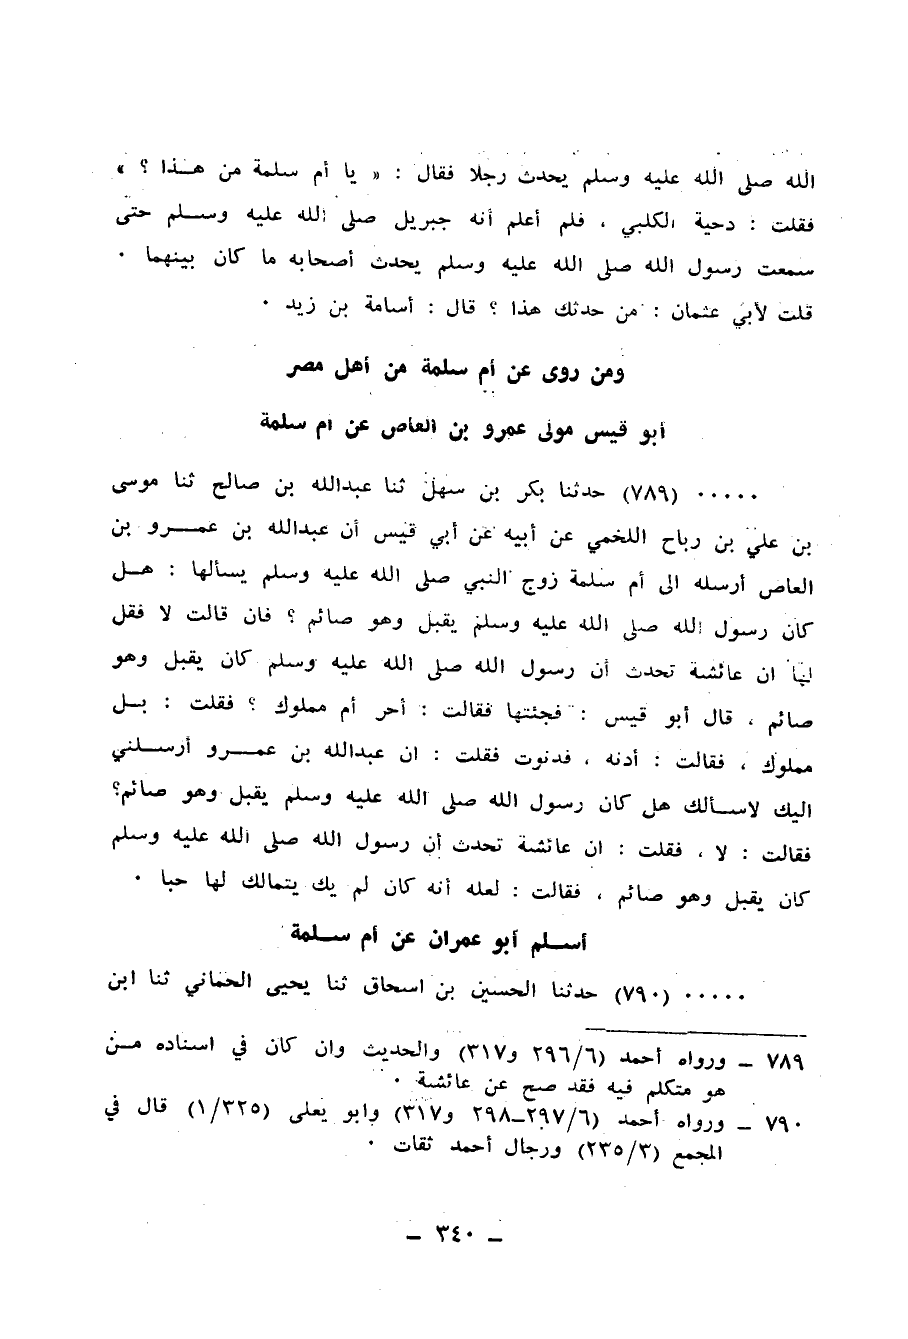 الله صلى الله عليه وسلم يحدث رجلا فقال : « يا أم سلمة من هــذا ؟ »
فقلت : دحية الكلبي ، فلم أعلم أنه جبريل صلى الله عليه وســلم حتى
سمعت رسول الله صلى الله عليه وسلم يحدث أصحابه ما كان بينهما ٠
قلت لأبي عثمان : من حدثك هذا ؟ قال : أسامة بن زيد ٠
ومن روى عن أم سلمة من أهل مصر
أبو قيس مولى عمرو بن العاص عن أم سلمة
٠٠٠٠٠ (٧٨٩) حدثنا بكر بن سهل ثنا عبدالله بن صالح ثنا موسى
بن علي بن رباح اللخمي عن أبيه عن أبي قيس أن عبدالله بن عمــرو بن
العاص أرسله الى أم سلمة زوج النبي صلى الله عليه وسلم يسألها : هــل
كان رسول الله صلى الله عليه وسلم يقبل وهو صائم ؟ فان قالت لا فقل
لها ان عائشة تحدث أن رسول الله صلى الله عليه وسلم كان يقبل وهو
صائم ، قال أبو قيس : فجئتها فقالت : أحر أم مملوك ؟ فقلت : بــل
مملوك ، فقالت : أدنه ، فدنوت فقلت : ان عبدالله بن عمــرو أرســلني
اليك لاســألك هل كان رسول الله صلى الله عليه وسلم يقبل وهو صائم؟
فقالت : لا ، فقلت : ان عائشة تحدث أن رسول الله صلى الله عليه وسلم
كان يقبل وهو صائم ، فقالت : لعله أنه كان لم يك يتمالك لها حبا ٠
أســلم أبو عمران عن أم ســلمة
٠٠٠٠٠ (٧٩٠) حدثنا الحسين بن اسحاق ثنا يحيى الحماني ثنا ابن
٧٨٩ ــ ورواه أحمد (٢٩٦/٦ و٣١٧) والحديث وان كان في اسناده مــن
هو متكلم فيه فقد صح عن عائشة ٠
٧٩٠ ــ ورواه أحمد (٢٩٧/٦ــ٢٩٨ و٣١٧) وابو يعلى (١/٣٢٥) قال في
المجمع (٢٣٥/٣) ورجال أحمد ثقات ٠
ــ ٣٤٠ ــ